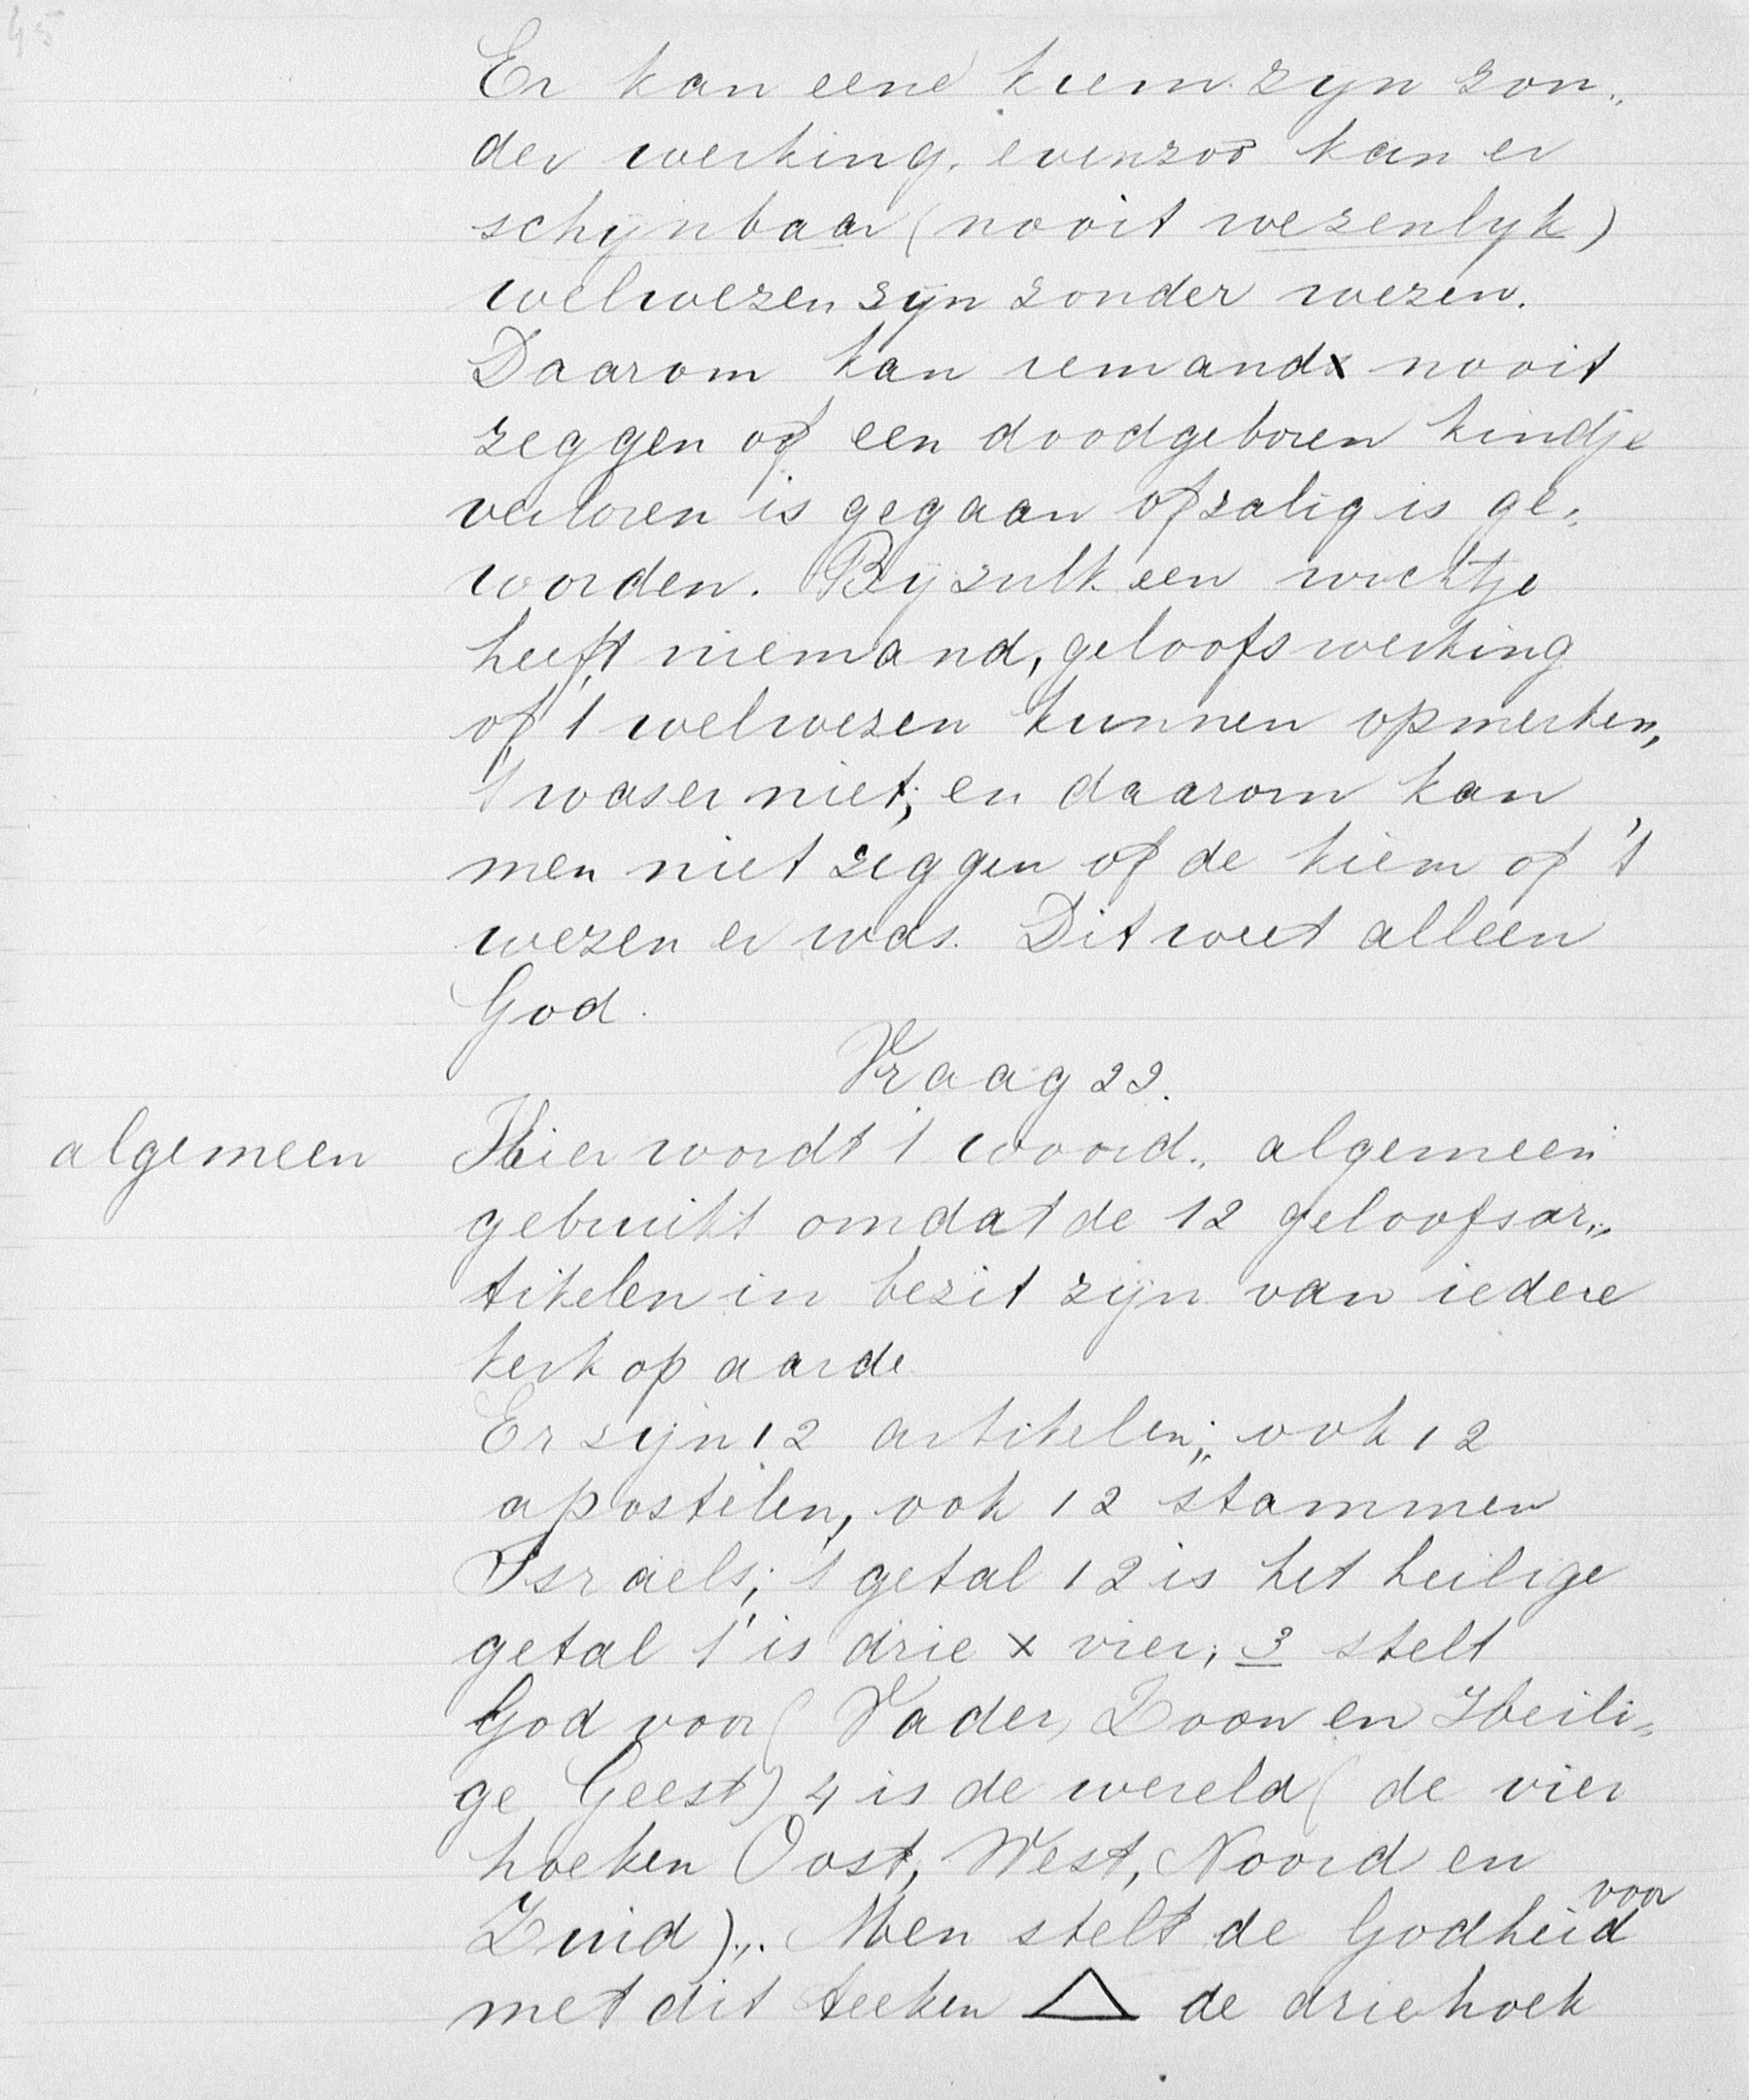 45
Er kan eene kiem zijn zon„
der werking, evenzoo kan er
schijnbaar (nooit wezenlyk)
welwezen zijn zonder wezen.
Daarom kan iemand nooit
zeggen of een doodgeboren kindje
verloren is gegaan of zalig is ge„
worden. Bij zulk een wichtje
heeft niemand, geloofswerking
of 't welwezen kunnen opmerken,
't was er niet; en daarom kan
men niet zeggen of de kiem of 't
wezen er was. Dit weet alleen
God.
Vraag 22.
algemeen Hier wordt 't woord „ algemeen"
gebruikt omdat de 12 geloofsar„
tikelen in bezit zijn van iedere
kerk op aarde
Er zijn 12 artikelen; ook 12
apostelen, ook 12 stammen
Israëls; 't getal 12 is het heilige
getal 't is drie x vier; 3 stelt
God voor (Vader, Zoon en Heili„
ge Geest) 4 is de wereld (de vier
hoeken Oost, West, Noord en
Zuid). Men stelt de Godheid voor
met dit teeken △ de driehoek